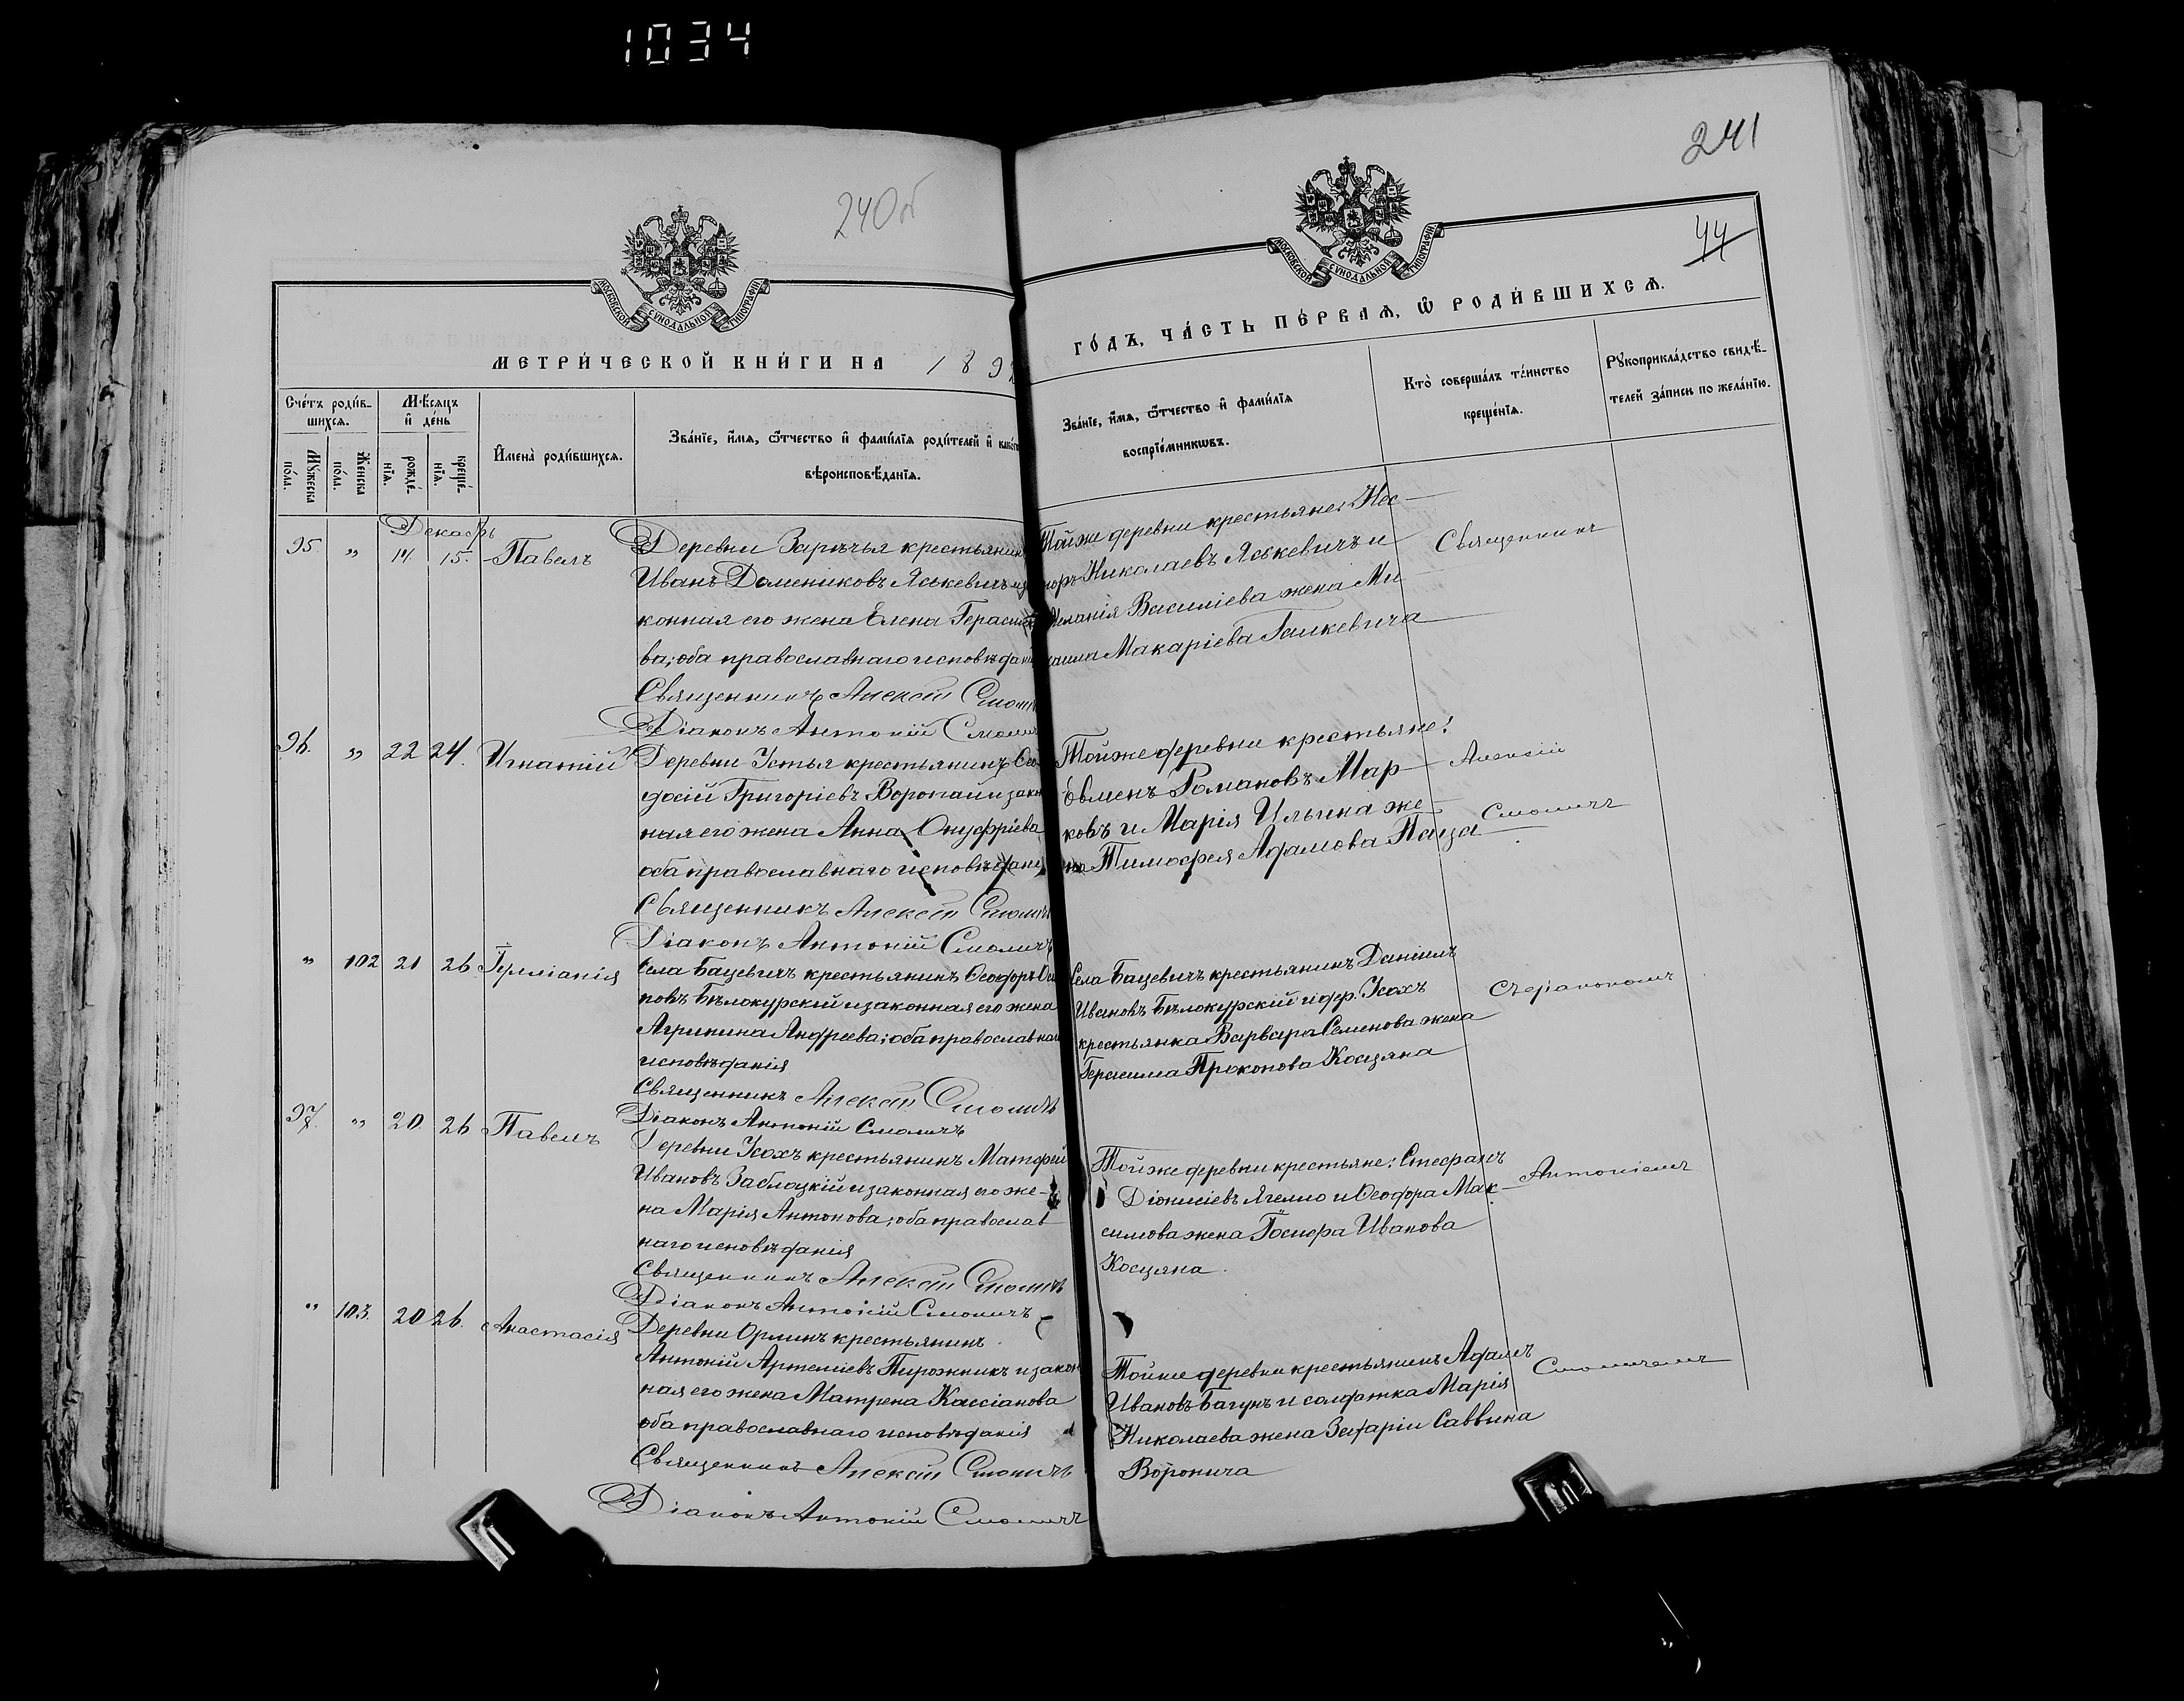 1034
240об
241
44
МОСКОВСКОЙ СѴНОДАЛЬНОЙ ТИПОГРАФІИ
МОСКОВСКОЙ СѴНОДАЛЬНОЙ ТИПОГРАФІИ
МЕТРИ́ЧЕСКОЙ КНИ́ГИ НА 189
ГО́ДЪ, ЧА́СТЬ ПЕ́РВАѦ, Ѿ РОДИ́ВШИХСѦ.
Сче́тъ роди́в-
шихсѧ.
Мꙋ́жеска по́ла.
Же́нска по́ла.
Мѣ́сѧцъ
и҆ де́нь
рожде́-
нїѧ.
креще́-
нїѧ.
И҆мена̀ роди́вшихсѧ.
Зва́нїе, и҆́мѧ, ѻ҆́тчество и҆ фамѝлїѧ роди́телей и҆ како́гѡ
вѣроисповѣ́данїѧ.
Зва́нїе, и҆́мѧ, ѻ҆́тчество и҆ фами́лїѧ
воспрїе́мникѡвъ.
Кто̀ соверша́лъ та́инство
креще́нїѧ.
Рꙋкоприкла́дство свидѣ́-
телей за́писи по жела́нїю.
Декабрь
95. " 14 15. Павелъ
Деревни Зарѣчья крестьянинъ
Иванъ Домениковъ Яськевичъ и за
конная его жена Елена Герасимо
ва; оба православнаго исповѣдані
Священникъ Алексѣй Смолич
Діаконъ Антоній Смолич
Тойже деревни крестьяне: Нес-
торъ Николаевъ Яськевичъ и
Меланія Василіева жена Ми-
хаила Макаріева Галкевича
Священникъ
96. " 22 24. Игнатій
Деревни Устья крестьянинъ Ѳео
досій Григоріевъ Воропай и закон
ная его жена Анна Онуфріева
оба православнаго исповѣданія
Священникъ Алексѣй Смоличъ
Діаконъ Антоній Смоличъ
Тойже деревни крестьяне:
Романовъ Мар-
ковъ и Марія Ильина же-
на Тимоѳея Адамова Паца
Алексій
Смоличъ
" 102 21 26 Іуліанія
Села Бацевичъ крестьянинъ Ѳеодоръ Оси
повъ Бѣлокурскій и законная его жена
Агрипина Андреева; оба православнаго
исповѣданія
Священникъ Алексѣй Смоличъ
Діаконъ Антоній Смоличъ
Села Бацевичъ крестьянинъ Даніилъ
Ивановъ Бѣлокурскій и дер. Усохъ
крестьянка Варвара Семенова жена
Герасима Прокопова Косцяна
съ діакономъ
97. " 20. 26 Павелъ
Деревни Усохъ крестьянинъ Матѳей
Ивановъ Заблоцкій и законная его же-
на Марія Антонова; оба православ
наго исповѣданія
Священникъ Алексѣй Смоличъ
Діаконъ Антоній Смоличъ
Тойже деревни крестьяне: Стефанъ
Діонисіевъ Ягелло и Ѳеодора Мак-
симова жена Іосифа Иванова
Косцяна.
Антоніемъ
" 103. 20 26. Анастасія
Деревни Орлинъ крестьянинъ
Антоній Артеміевъ Пирожникъ и закон
ная его жена Матрена Кассіанова
оба православнаго исповѣданія
Священникъ Алексѣй Смоличъ
Діаконъ Антоній Смоличъ
Тойже деревни крестьянинъ Адамъ
Ивановъ Багунъ и солдатка Марія
Николаева жена Захаріи Саввина
Воронича
Смоличемъ